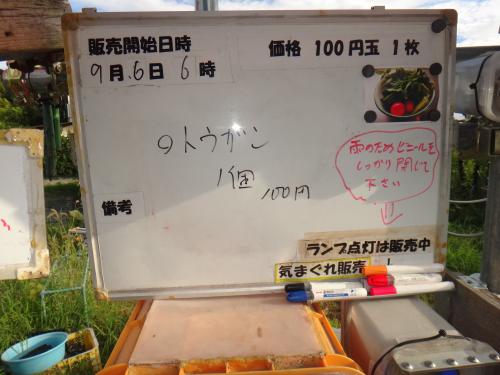 販売開始日時
9月6日 6時
価格 100円玉 1枚
トウガン
1個
100円
雨のためビニールを
しっかり閉じて
下さい
備考
ランプ点灯は販売中
気まぐれ販売